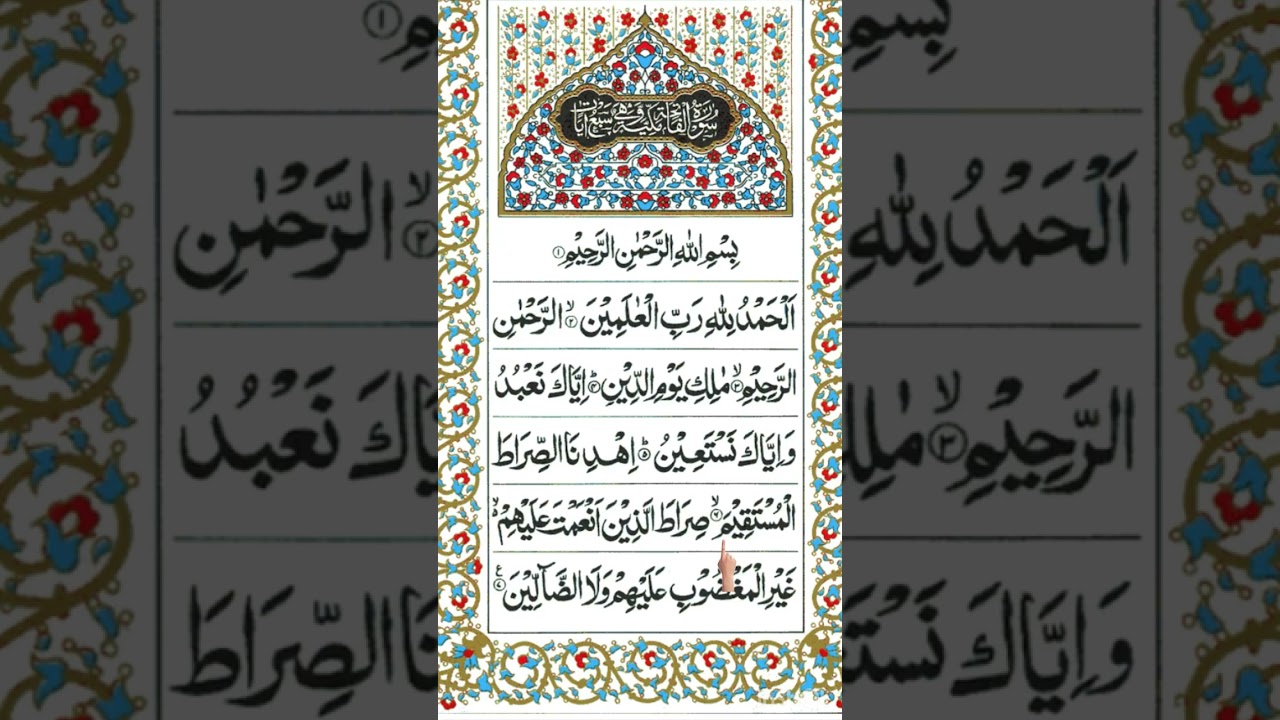 سُوْرَةُ الْفَاتِحَةِ مَكِّيَّةٌ وَّهِيَ سَبْعُ اٰيَاتٍ
بِسْمِ اللّٰهِ الرَّحْمٰنِ الرَّحِيْمِ ۝۱
اَلْحَمْدُ لِلّٰهِ رَبِّ الْعٰلَمِيْنَ ۙ۝۲ الرَّحْمٰنِ
الرَّحِيْمِ ۙ۝۳ مٰلِكِ يَوْمِ الدِّيْنِ ؕ۝۴ اِيَّاكَ نَعْبُدُ
وَ اِيَّاكَ نَسْتَعِيْنُ ؕ۝۵ اِهْدِنَا الصِّرَاطَ
الْمُسْتَقِيْمَ ۙ۝۶ صِرَاطَ الَّذِيْنَ اَنْعَمْتَ عَلَيْهِمْ ۙ۬
غَيْرِ الْمَغْضُوْبِ عَلَيْهِمْ وَلَا الضَّآلِّيْنَ ۝۷ ع